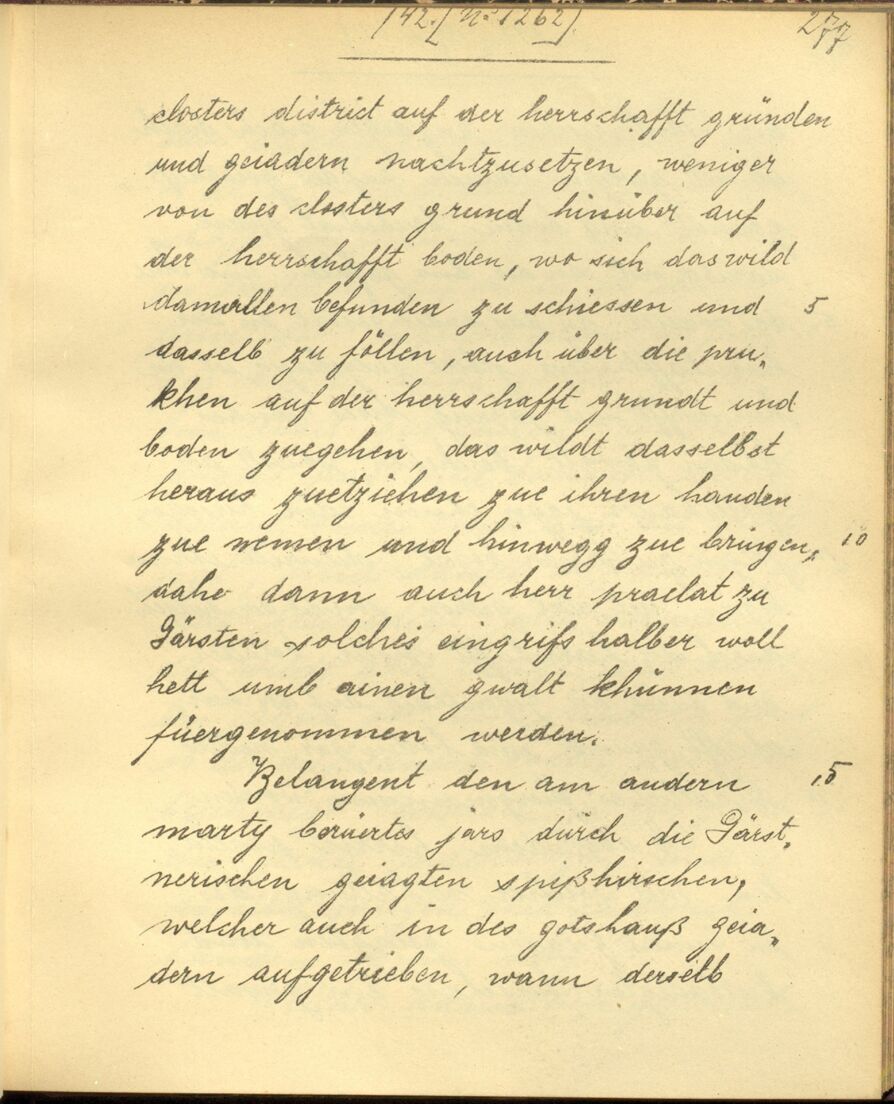 142. [No 1262]
277
closters district auf der herrschafft gründen
und geiadern nachtzusetzen, weniger
von des closters grund hinüber auf
der herrschafft boden, wo sich das wild
damallen befunden zu schiessen und 5
dasselb zu föllen, auch über die pru„
khen auf der herrschafft grundt und
boden zuegehen, das wildt dasselbst
heraus zuetziehen zue ihren handen
zue nemen und hinwegg zue bringen, 10
dahe dann auch herr praelat zu
Gärsten solches eingrifs halber woll
hett umb ainen gwalt khünnen
füergenommen werden.
Belangent den am andern 15
marty berüertes jars durch die Gärst„
nerischen geiagten spißhirschen,
welcher auch in des gotshauß geia„
dern aufgetrieben, wann derselb